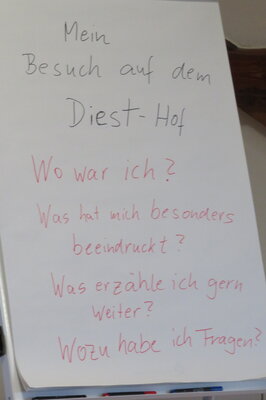 Mein
Besuch auf dem
Diest-Hof
Wo war ich?
Was hat mich besonders
beeindruckt?
Was erzähle ich gern
weiter?
Wozu habe ich Fragen?